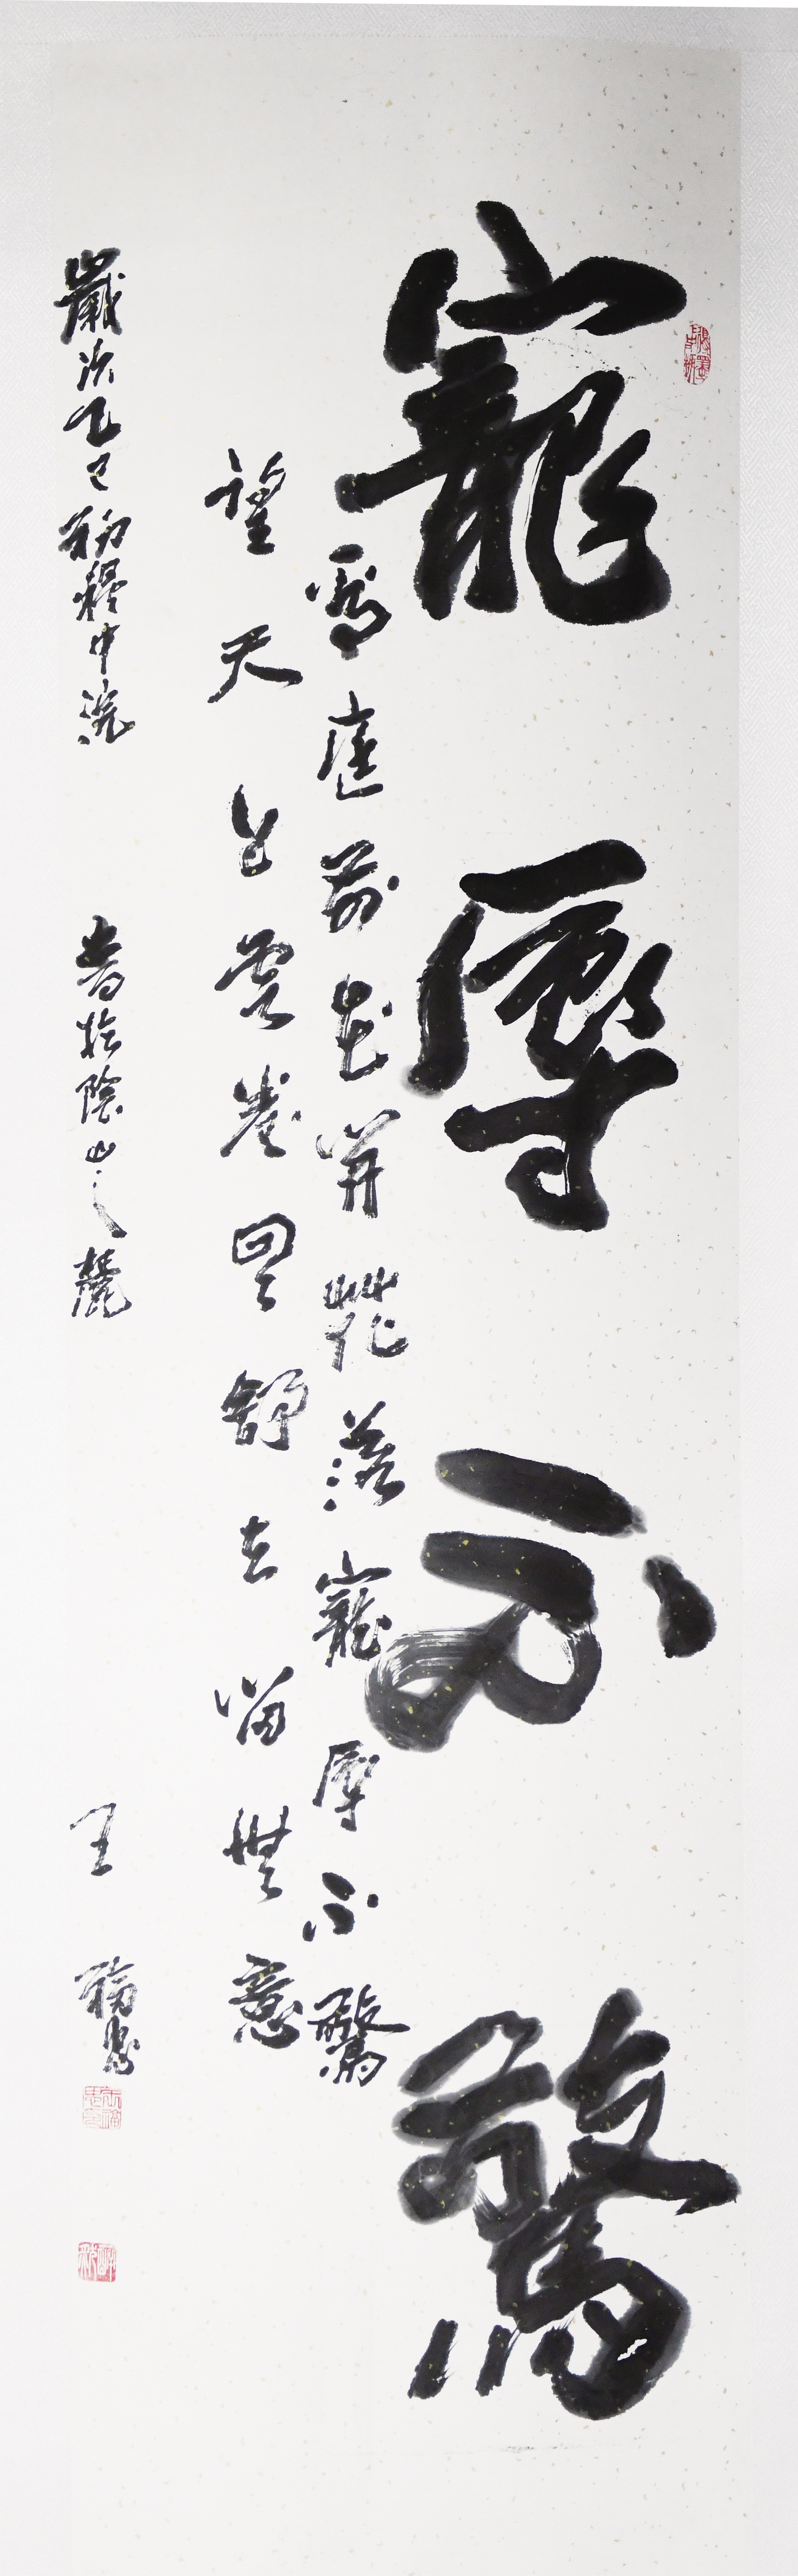 寵辱不驚
看庭前花開花落寵辱不驚
望天上雲卷雲舒去留無意
歲次乙巳初中浣書於陰山之麓王福